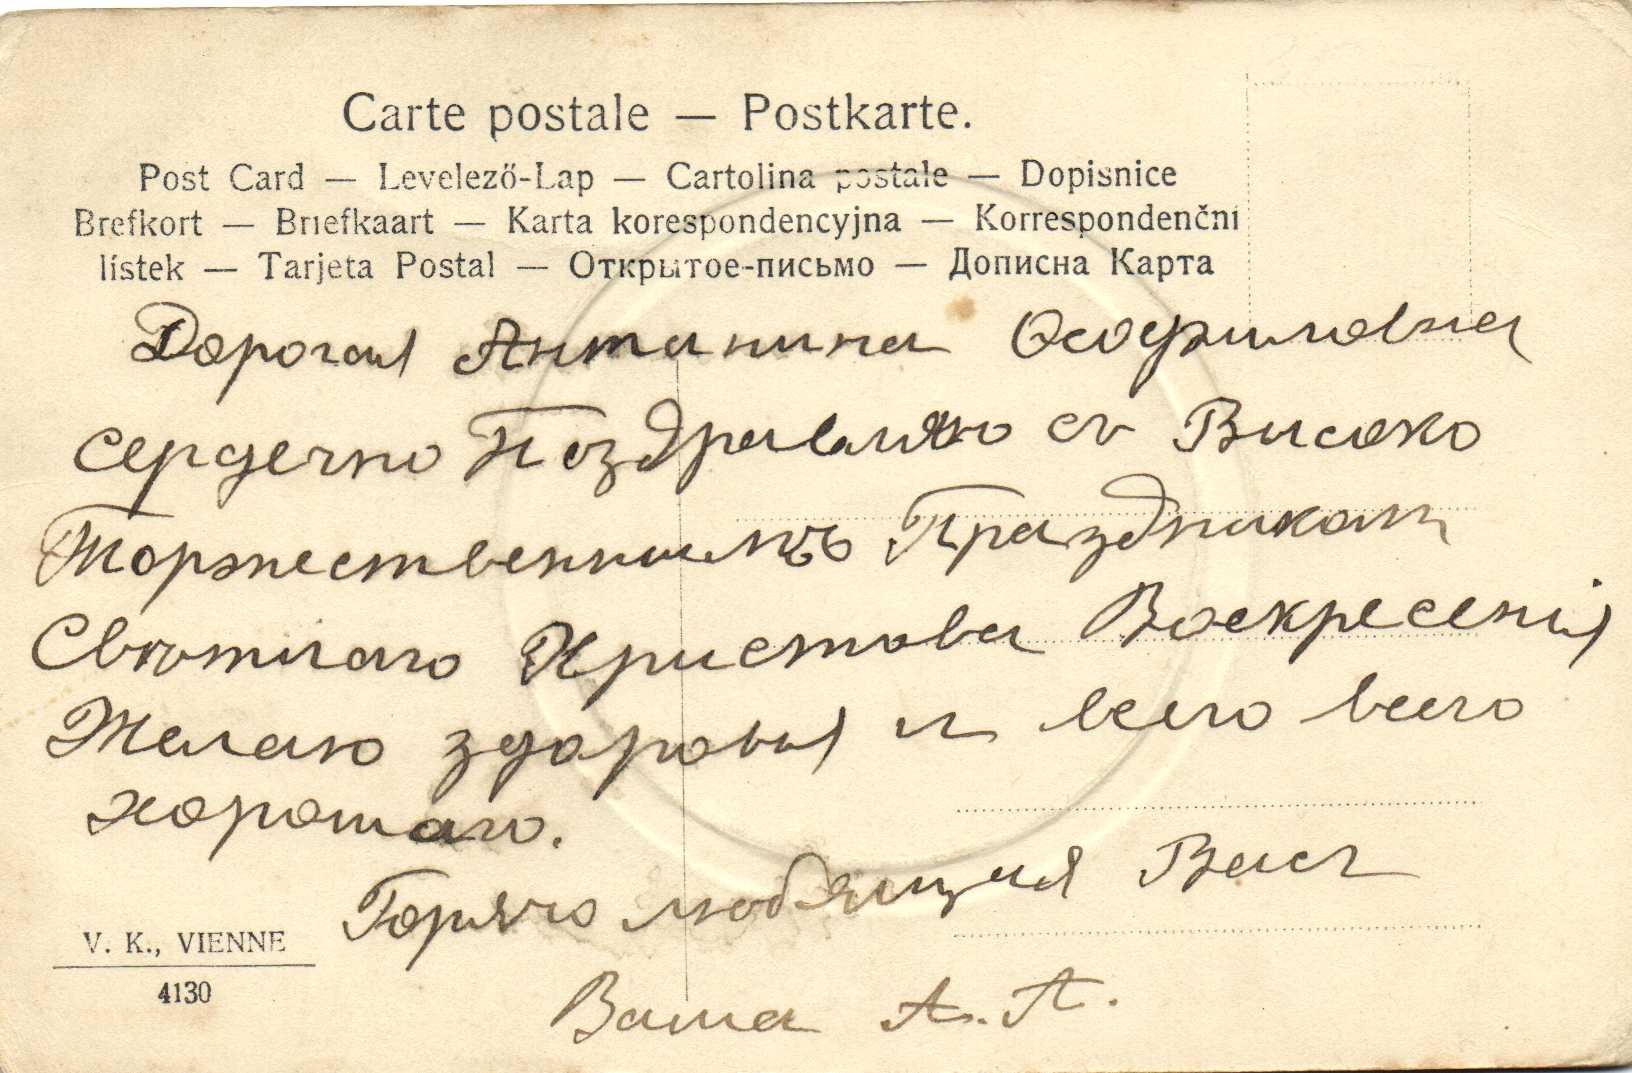 Carte postale — Postkarte.
Post Card — Levelező-Lap — Cartolina postale — Dopisnice
Brefkort — Briefkaart — Karta korespondencyjna — Korrespondenční
lístek — Tarjeta Postal — Открытое-письмо — Дописна Карта
Дорогая Антанина Феофиловна
сердечно Поздравляю съ Високо
Торжественнимъ Праздникам
Святаго Христова Воскресенія
Желаю здоровья и всего всего
хорошаго.
Горячо любящая Васъ
Ваша А. А.
V. K., VIENNE
4130